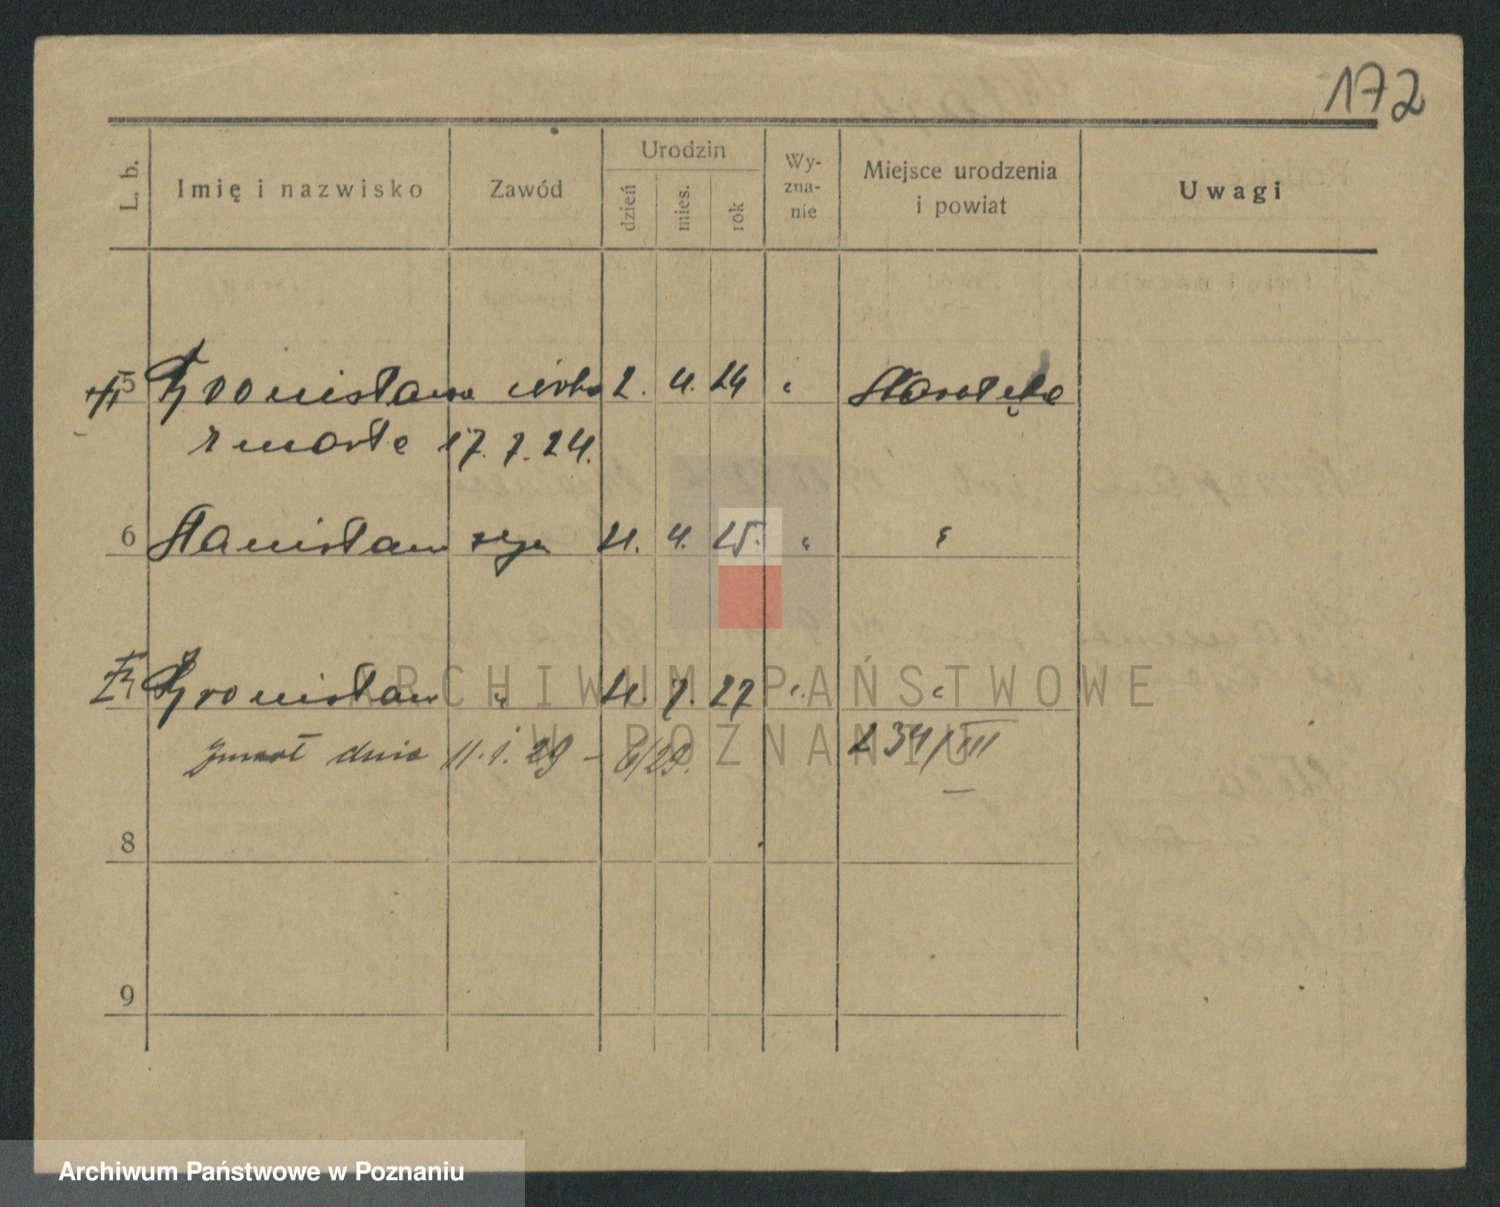 172
L. b. Imię i nazwisko Zawód Urodzin dzień mies. rok Wy-zna-nie Miejsce urodzenia i powiat Uwagi
5 Bronisława córka 2. 4. 24 " Starołęka
zmarła 17. 7. 24.
6 Stanisław syn 4. 25. " "
7 Bronisław " 7. 27 " "
zmarł dnia 11. 1. 29 - 6/29. 234/III
8
9
ARCHIWUM PAŃSTWOWE
W POZNANIU
Archiwum Państwowe w Poznaniu